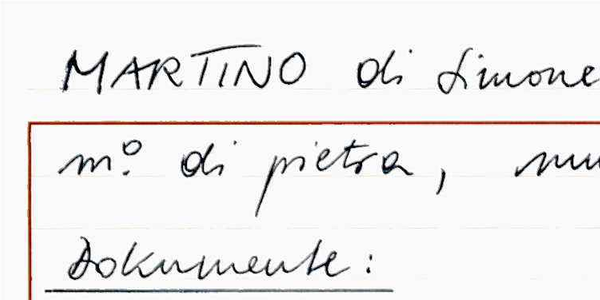 MARTINO di Simone
m.º di pietra,
Dokumente: